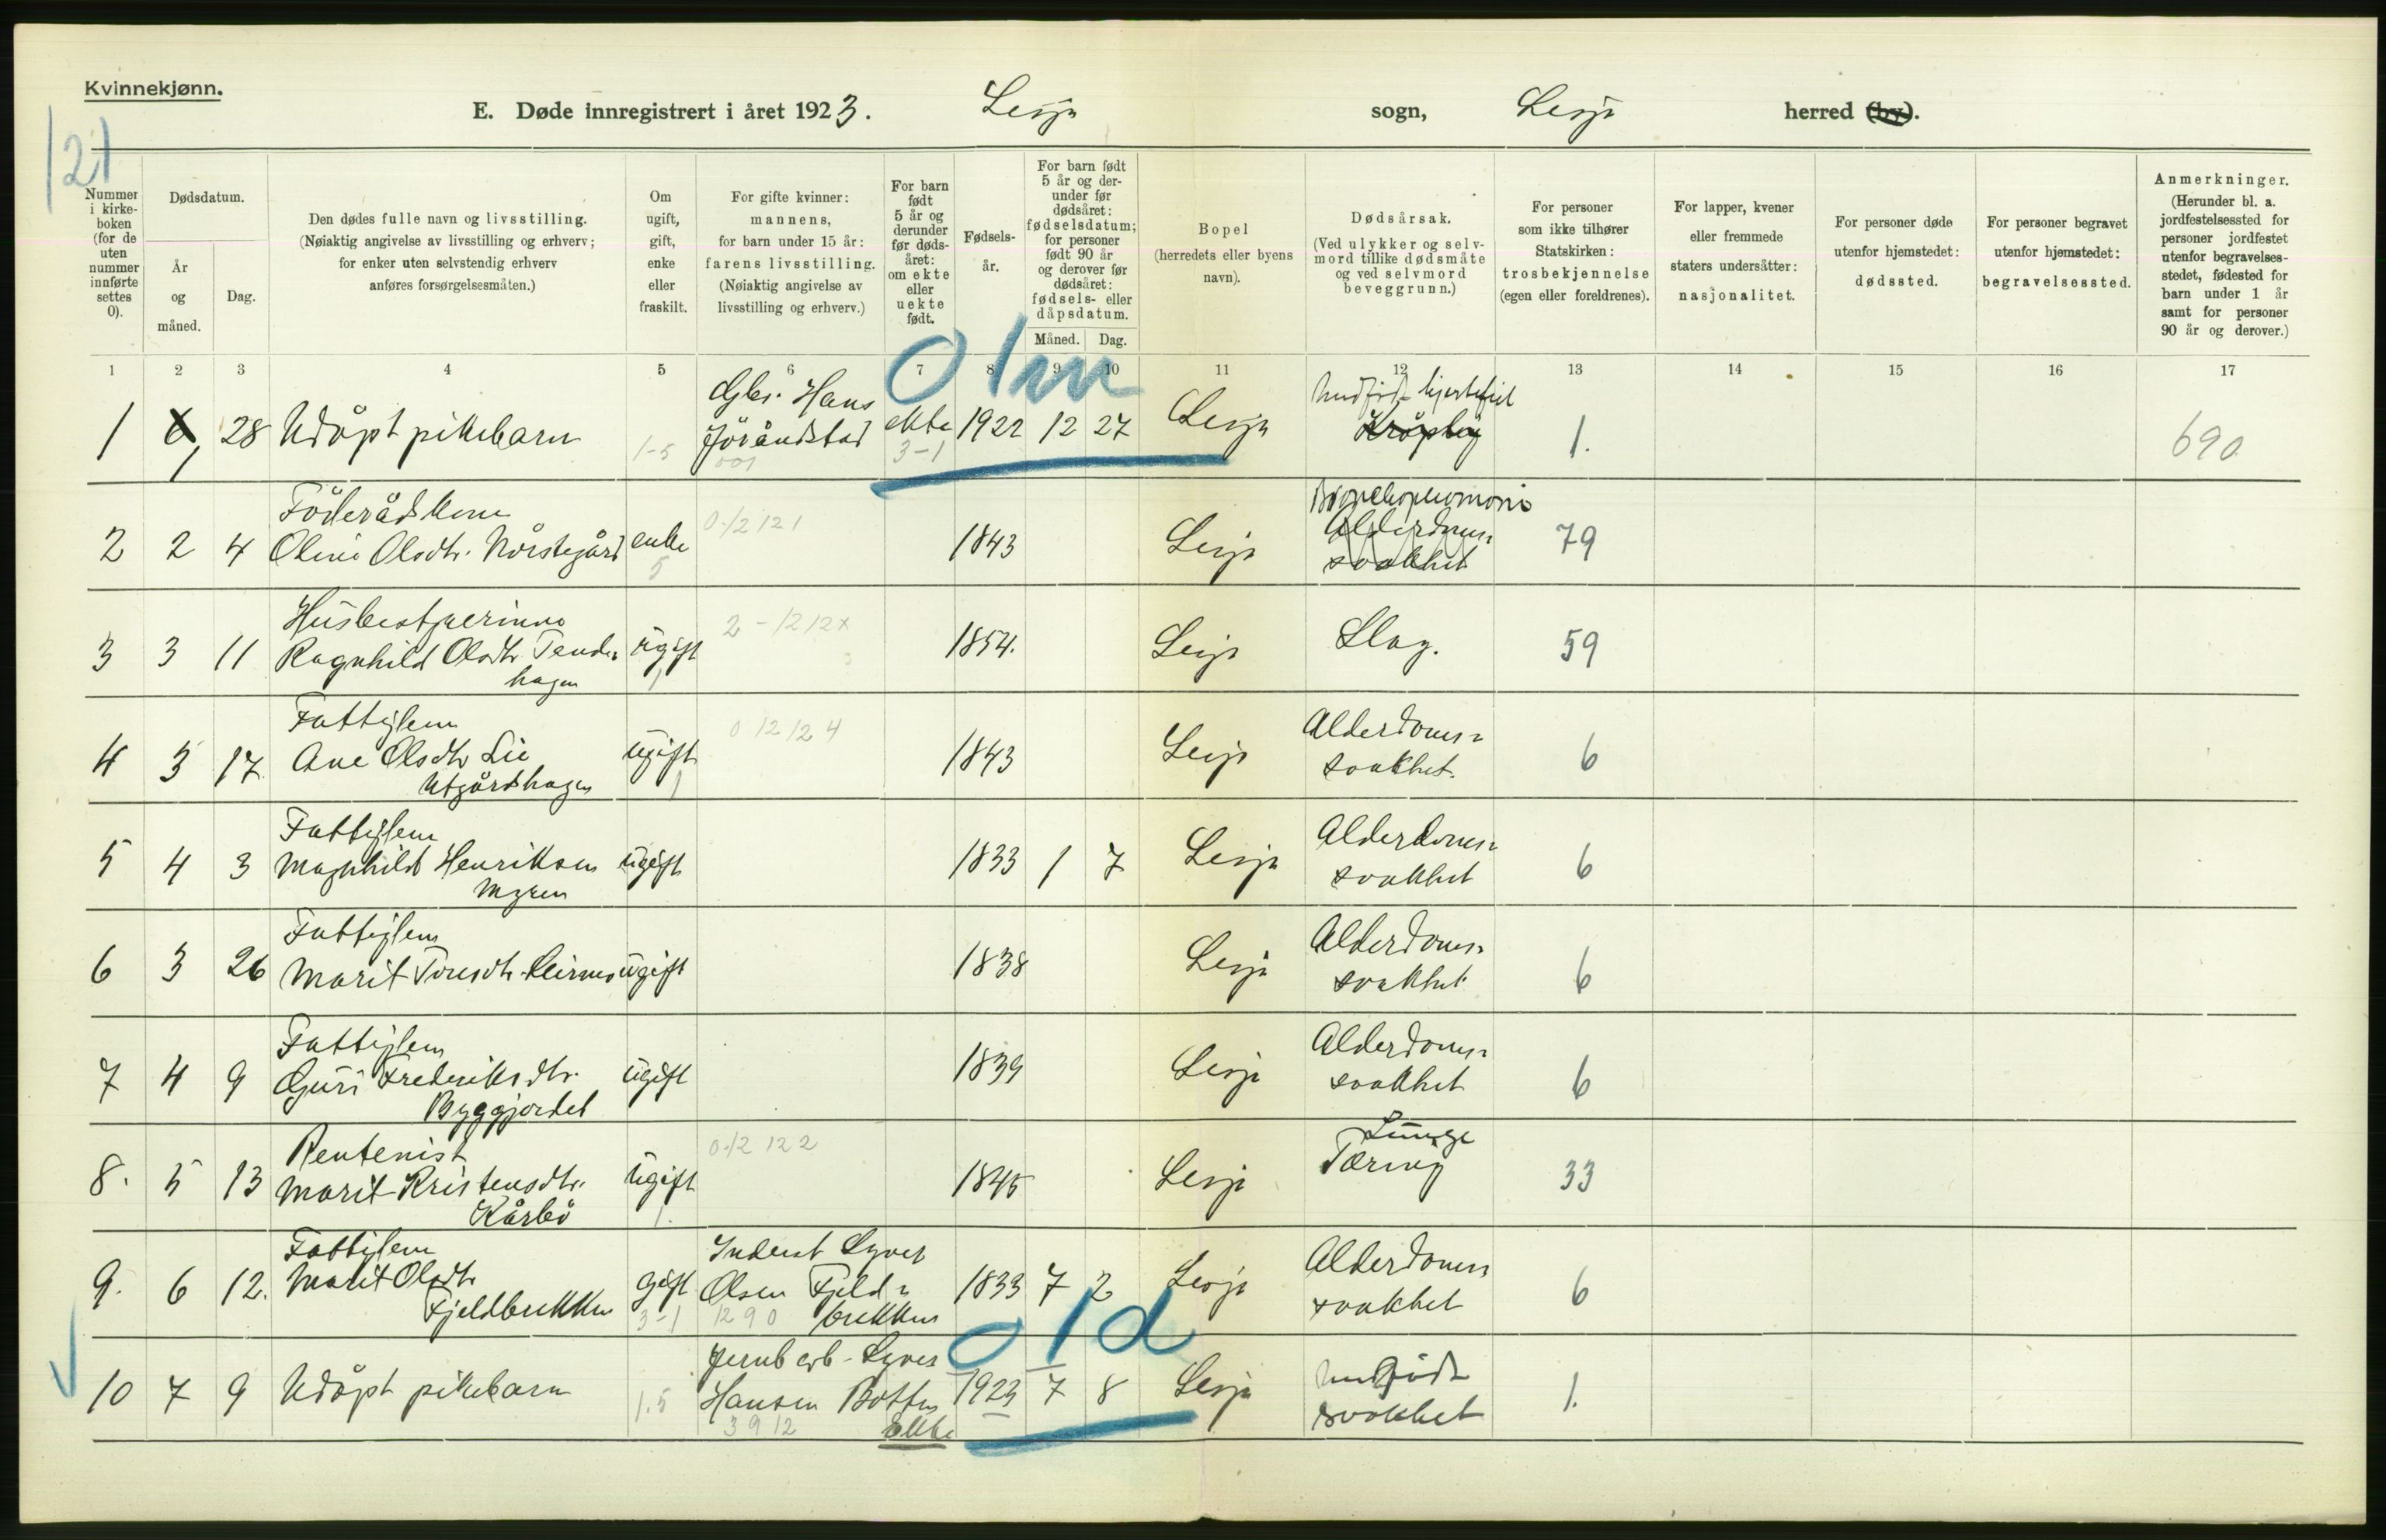 Kvinnekjønn.
E. Døde innregistrert i året 1923. Lesja sogn, Lesja herred (by).
121
Nummer i kirke- boken (for de uten nummer innførte settes 0).
Dødsdatum.
År og måned.
Dag.
Den dødes fulle navn og livsstilling.
(Nøiaktig angivelse av livsstilling og erhverv;
for enker uten selvstendig erhverv
anføres forsørgelsesmåten.)
Om ugift, gift, enke eller fraskilt.
For gifte kvinner:
mannens,
for barn under 15 år:
farens livsstilling.
(Nøiaktig angivelse av
livsstilling og erhverv.)
For barn født 5 år og derunder før døds- året: om ekte eller uekte født.
Fødsels- år.
For barn født 5 år og der- under før dødsåret: fødselsdatum; for personer født 90 år og derover før dødsåret: fødsels- eller dåpsdatum.
Måned. Dag.
Bopel
(herredets eller byens
navn).
Dødsårsak.
(Ved ulykker og selv-
mord tillike dødsmåte
og ved selvmord
beveggrunn.)
For personer
som ikke tilhører
Statskirken:
trosbekjennelse
(egen eller foreldrenes).
For lapper, kvener
eller fremmede
staters undersåtter:
nasjonalitet.
For personer døde
utenfor hjemstedet:
dødssted.
For personer begravet
utenfor hjemstedet:
begravelsessted.
Anmerkninger.
(Herunder bl. a.
jordfestelsessted for
personer jordfestet
utenfor begravelses-
stedet, fødested for
barn under 1 år
samt for personer
90 år og derover.)
1 2 3 4 5 6 7 8 9 10 11 12 13 14 15 16 17
0 1m
Gbr. Hans Medfødt hjertefeil
1 1 28 Udøpt pikebarn 1-5 Jöråndstad ekte 1922 12 27 Lesja 1. 690
001 3-1
Föderådskone 0-12 121 Bronchopneumoni
2 2 4 Oline Olsdtr. Nörstegård enke 1843 Lesja Alderdoms- svakhet 79
5
Husbestyerinne 2-1212x
3 3 11 Ragnhild Olsdtr Tende- ugift 1854. Lesja Slag. 59
hagen 1
Fattiglem 0 12 12 4 Alderdoms-
4 3 17. Ane Olsdtr Lie ugift 1843 Lesja svakhet. 6
Utgårdshagen 1
Fattiglem Alderdoms-
5 4 3 Magnhild Henriksen ugift 1833 1 7 Lesja svakhet 6
Myren
Fattiglem Alderdoms-
6 3 26 Marit Toresdtr. ugift 1838 Lesja svakhet 6
Fattiglem Alderdoms-
7 4 9 Guri Frederiksdtr. ugift 1839 Lesja svakhet 6
Byggjordet
Rentenist 0-12 122 Lunge
8. 5 13 Marit Kristensdtr. ugift 1845 Lesja Tæring 33
Kårbö 1.
Fattiglem Inderst Syver Alderdoms
9. 6 12. Marit Olsdtr gift Olsen Fjeld- 1833 7 2 Lesja svakhet 6
Fjeldbrekken 3-1 1290 brekken
0 1d
Jernb arb. Syver
10 7 9 Udøpt pikebarn 1.5 Hansen Botten 1923 7 8 Lesja Medfødt svakhet 1.
3912 ekte